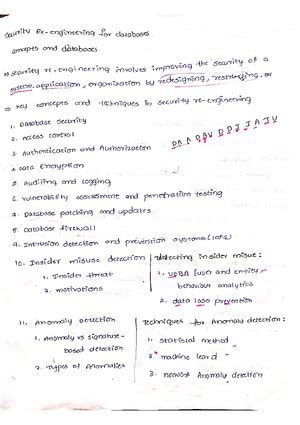 Security Re-engineering for databases
concepts and databases.
→ security re-engineering involves improving the security of a
system, application, organization by redesigning, restructing, or
→ key concepts and techniques in security re-engineering
1. Database security
2. Access control
3. Authentication and Authorization
4. Data Encryption
5. Auditing and logging
6. vulnerability assessment and penetration testing
7. Database patching and updates
8. Database firewall
9. Intrusion detection and prevention systems (IDPS)
10. Insider misuse detection
1. Insider threat
2. motivations
detecting insider misue:
1. UEBA [user and entity
behaviour analytics
2. data loss prevention
11. Anomaly Detection
1. Anomaly vs signature-
based detection
2. Types of Anomalies
Techniques for Anomaly detection:
1. statistical method
2. machine learn
3. network Anomaly detection